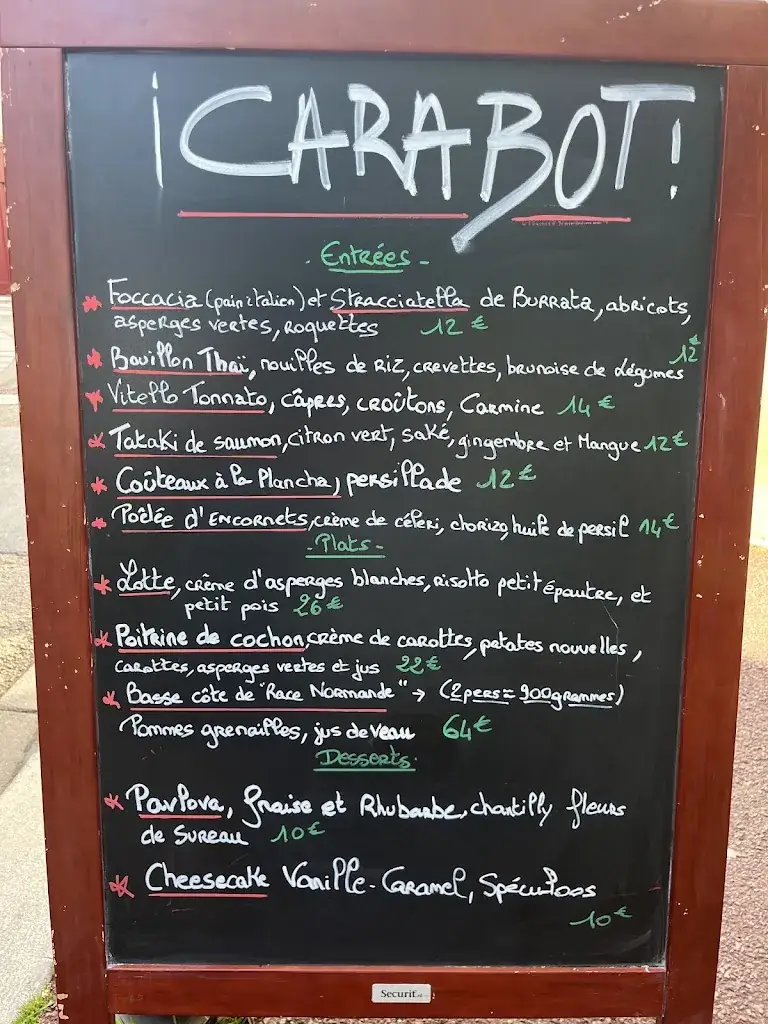 ¡CARABOT!
- Entrées -
* Foccacia (pain italien) et Stracciatella de Burrata, abricots,
asperges vertes, roquettes 12 €
* Bouillon Thaï, nouilles de riz, crevettes, brunoise de légumes 12 €
* Vitello Tonnato, câpres, croûtons, Carmine 14 €
* Takaki de saumon, citron vert, saké, gingembre et Mangue 12 €
* Coûteaux à la Plancha, persillade 12 €
* Poêlée d'Encornets, crème de céleri, chorizo, huile de persil 14 €
- Plats -
* Lotte, crème d'asperges blanches, risotto petit épautre, et
petit pois 26 €
* Poitrine de cochon, crème de carottes, patates nouvelles,
carottes, asperges vertes et jus 22 €
* Basse côte de "Race Normande" → (2 pers = 900 grammes)
Pommes grenailles, jus de veau 64 €
Desserts
* Pavlova, fraise et Rhubarbe, chantilly fleurs
de Sureau 10 €
* Cheesecake Vanille-Caramel, Spéculoos
10 €
Securit